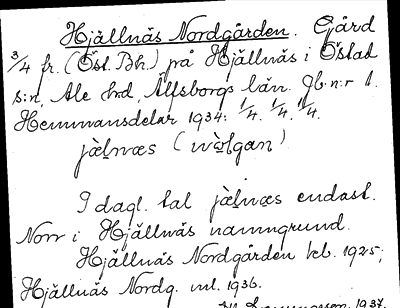 Hjällnäs Nordgården. Gård
3/4 fr. (Öst. Bh.) på Hjällnäs i Östad
s:n, Ale hrd, Älfsborgs län. Jb. n:r 1.
Hemmansdelar 1934: 1/4. 1/4. 1/4.
jæ̀lnæs (wòlgan)
I dagl. tal jæ̀lnæs endast.
Norr i Hjällnäs namngrund.
Hjällnäs Nordgården leb. 1925;
Hjällnäs Nordg. ml. 1936.
1937.